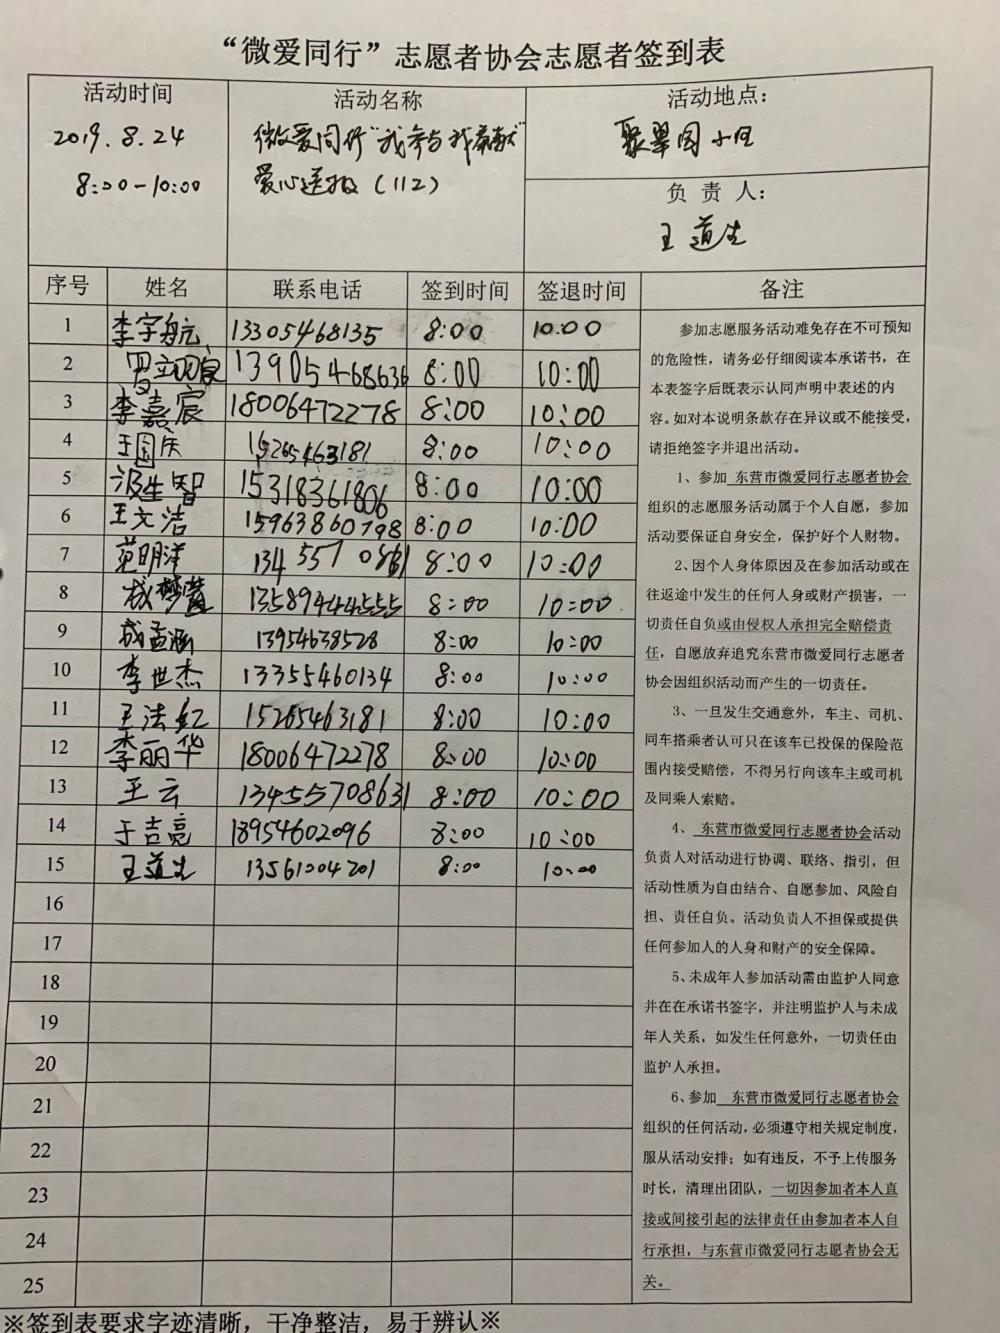 “微爱同行”志愿者协会志愿者签到表
活动时间
2019.8.24
8:00-10:00
活动名称
微爱同行“我参与我奉献”
爱心送报（112）
活动地点：
聚翠园小区
负 责 人：
王道生
序号 姓名 联系电话 签到时间 签退时间 备注
1 李宇航 13305468135 8:00 10:00
2 13905468636 8:00 10:00
3 李嘉宸 18006472278 8:00 10:00
4 王国庆 15265463181 8:00 10:00
5 汲生智 15318361806 8:00 10:00
6 王文洁 15963860798 8:00 10:00
7 范明洋 134 557 0861 8:00 10:00
8 成梦莹 13589444555 8:00 10:00
9 成孟涵 13954638528 8:00 10:00
10 李世杰 13355460134 8:00 10:00
11 王法红 15265463181 8:00 10:00
12 李丽华 18006472278 8:00 10:00
13 王云 13455708631 8:00 10:00
14 于吉亮 18954602096 8:00 10:00
15 王道生 13561004201 8:00 10:00
16
17
18
19
20
21
22
23
24
25
参加志愿服务活动难免存在不可预知
的危险性，请务必仔细阅读本承诺书，在
本表签字后既表示认同声明中表述的内
容。如对本说明条款存在异议或不能接受，
请拒绝签字并退出活动。
1、参加 东营市微爱同行志愿者协会
组织的志愿服务活动属于个人自愿，参加
活动要保证自身安全，保护好个人财物。
2、因个人身体原因及在参加活动或在
往返途中发生的任何人身或财产损害，一
切责任自负或由侵权人承担完全赔偿责
任，自愿放弃追究东营市微爱同行志愿者
协会因组织活动而产生的一切责任。
3、一旦发生交通意外，车主、司机、
同车搭乘者认可只在该车已投保的保险范
围内接受赔偿，不得另行向该车主或司机
及同乘人索赔。
4、 东营市微爱同行志愿者协会活动
负责人对活动进行协调、联络、指引，但
活动性质为自由结合、自愿参加、风险自
担、责任自负。活动负责人不担保或提供
任何参加人的人身和财产的安全保障。
5、未成年人参加活动需由监护人同意
并在在承诺书签字，并注明监护人与未成
年人关系，如发生任何意外，一切责任由
监护人承担。
6、参加 东营市微爱同行志愿者协会
组织的任何活动，必须遵守相关规定制度，
服从活动安排；如有违反，不予上传服务
时长，清理出团队，一切因参加者本人直
接或间接引起的法律责任由参加者本人自
行承担，与东营市微爱同行志愿者协会无
关。
※签到表要求字迹清晰，干净整洁，易于辨认※